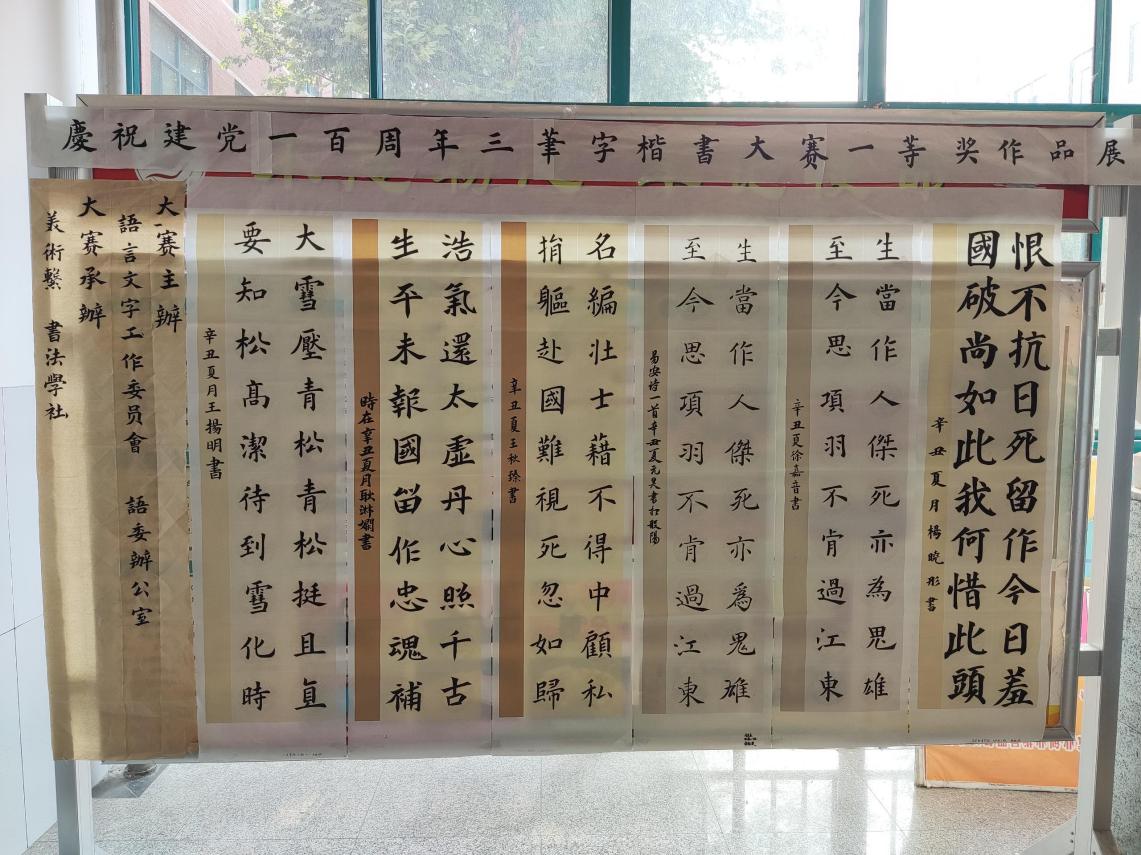 慶祝建党一百周年三筆字楷書大赛一等奖作品展
恨不抗日死留作今日羞
國破尚如此我何惜此頭
辛丑夏月楊晥彤書
生當作人傑死亦為鬼雄
至今思項羽不肯過江東
辛丑夏徐嘉音書
生當作人傑死亦爲鬼雄
至今思項羽不肯過江東
易安诗一首辛丑夏元昊書於
名編壮士藉不得中顧私
捐軀赴國難視死忽如歸
辛丑夏王秋臻書
浩氣還太虛丹心照千古
生平未報國畱作忠魂補
時在辛丑夏月耿淋斕書
大雪壓青松青松挺且直
要知松高潔待到雪化時
辛丑夏月王揚明書
大赛主辦
語言文字工作委员會 語委辦公室
大赛承辦
美術繫 書法學社